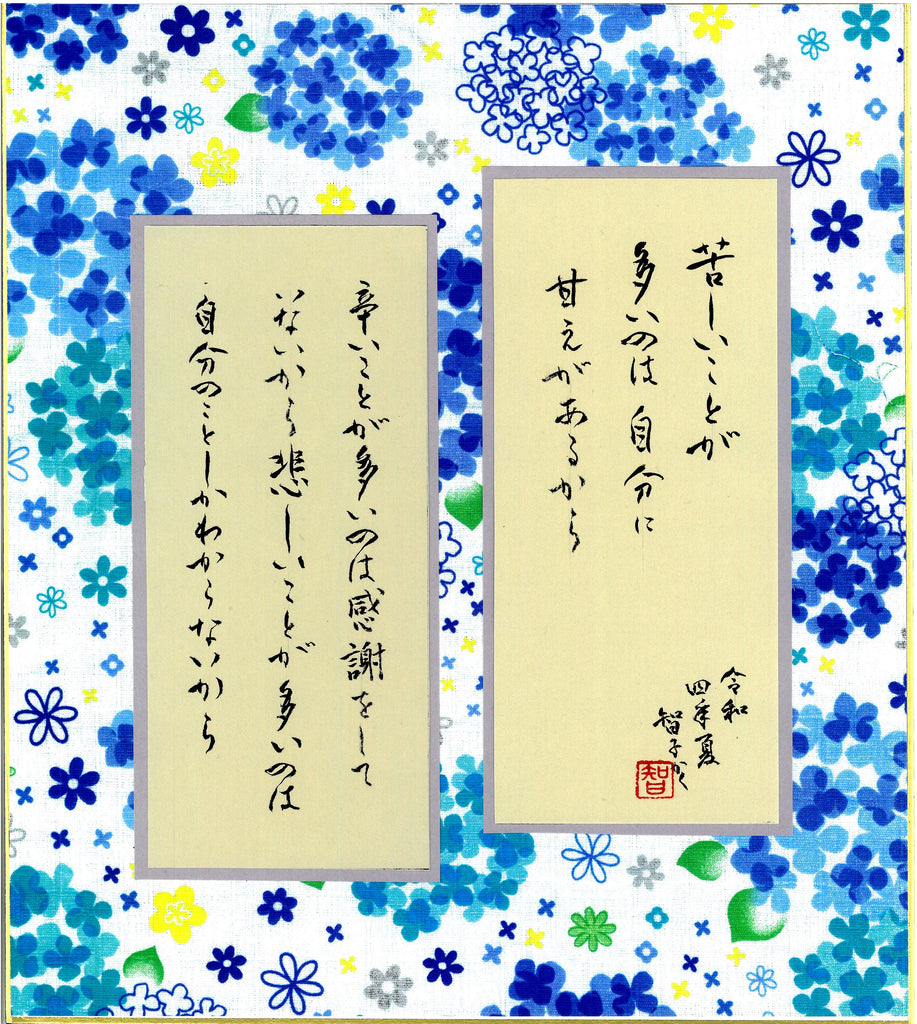 苦しいことが
多いのは自分に
甘えがあるから
令和
四年夏
智子かく
智
辛いことが多いのは感謝をして
いないから悲しいことが多いのは
自分のことしかわからないから